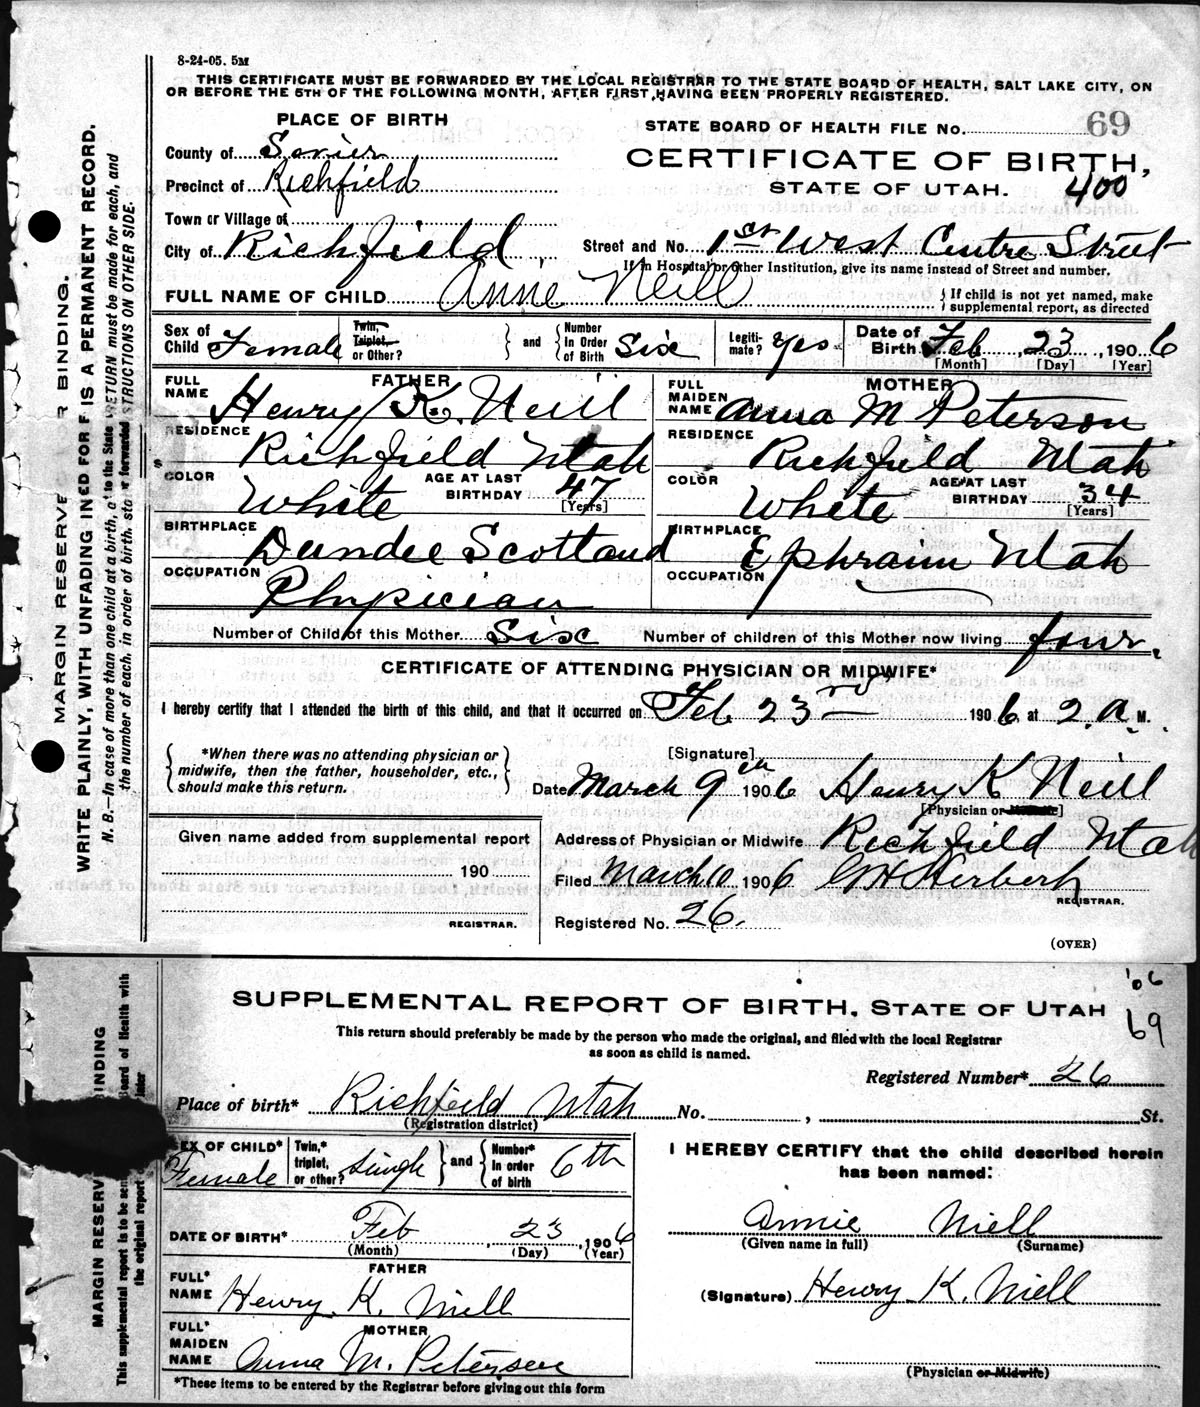 8-24-05. 5M
THIS CERTIFICATE MUST BE FORWARDED BY THE LOCAL REGISTRAR TO THE STATE BOARD OF HEALTH, SALT LAKE CITY, ON
OR BEFORE THE 5TH OF THE FOLLOWING MONTH, AFTER FIRST HAVING BEEN PROPERLY REGISTERED.
PLACE OF BIRTH
STATE BOARD OF HEALTH FILE No. 69
County of Sevier
CERTIFICATE OF BIRTH,
Precinct of Richfield
STATE OF UTAH. 400
Town or Village of
City of Richfield Street and No. 1st West Centre Street
If in Hospital or other Institution, give its name instead of Street and number.
FULL NAME OF CHILD Annie Neill { If child is not yet named, make supplemental report, as directed
Sex of Child Female Twin, Triplet, or Other? } and { Number In Order of Birth Six Legiti-mate? Yes Date of Birth Feb 23, 1906
[Month] [Day] [Year]
FATHER
FULL NAME Henry K. Neill
RESIDENCE Richfield Utah
COLOR White AGE AT LAST BIRTHDAY 47 [Years]
BIRTHPLACE Dundee Scotland
OCCUPATION Physician
MOTHER
FULL MAIDEN NAME Anna M Peterson
RESIDENCE Richfield Utah
COLOR White AGE AT LAST BIRTHDAY 34 [Years]
BIRTHPLACE Ephraim Utah
OCCUPATION
Number of Child of this Mother Six Number of children of this Mother now living four.
CERTIFICATE OF ATTENDING PHYSICIAN OR MIDWIFE*
I hereby certify that I attended the birth of this child, and that it occurred on Feb 23rd 1906 at 2 a. M.
{ *When there was no attending physician or
midwife, then the father, householder, etc.,
should make this return. }
[Signature]
Date March 9th 1906 Henry K Neill
[Physician or Midwife]
Given name added from supplemental report
190
REGISTRAR.
Address of Physician or Midwife Richfield Utah
Filed March 10 1906 G H Herbert
REGISTRAR.
Registered No. 26.
(OVER)
MARGIN RESERVED FOR BINDING.
WRITE PLAINLY, WITH UNFADING INK THIS IS A PERMANENT RECORD.
N. B.—In case of more than one child at a birth, a RETURN must be made for each, and
the number of each, in order of birth, stated INSTRUCTIONS ON OTHER SIDE.
'06
69
SUPPLEMENTAL REPORT OF BIRTH, STATE OF UTAH
This return should preferably be made by the person who made the original, and filed with the local Registrar
as soon as child is named.
Registered Number* 26
Place of birth* Richfield Utah No. , St.
(Registration district)
SEX OF CHILD* Female Twin,* triplet, or other? Single } and { Number* in order of birth 6th
DATE OF BIRTH* Feb, 23, 1906
(Month) (Day) (Year)
FATHER
FULL* NAME Henry K. Niell
MOTHER
FULL* MAIDEN NAME Anna M. Petersen
*These items to be entered by the Registrar before giving out this form
I HEREBY CERTIFY that the child described herein
has been named:
Annie Niell
(Given name in full) (Surname)
(Signature) Henry K. Niell
(Physician or Midwife)
MARGIN RESERVED BINDING
This supplemental report is to be sen Board of Health with
the original report later